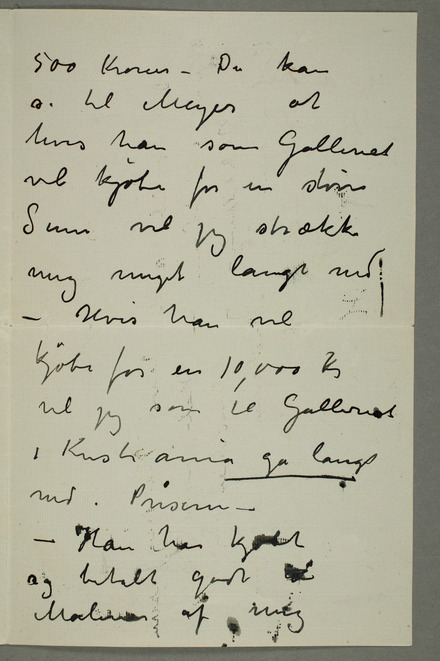 500 Kroner – Du kan
s. til Meyer at
hvis han som Galleriet
vil kjöbe for en större
Sum vil jeg strække
mig meget langt ned
– Hvis han vil
kjöbe for en 10,000 Kr
vil jeg som til Galleriet
i Kristiania gå langt
ned. Prisern –
– Han har kjøbt
og betalt godt
Malerier af mig